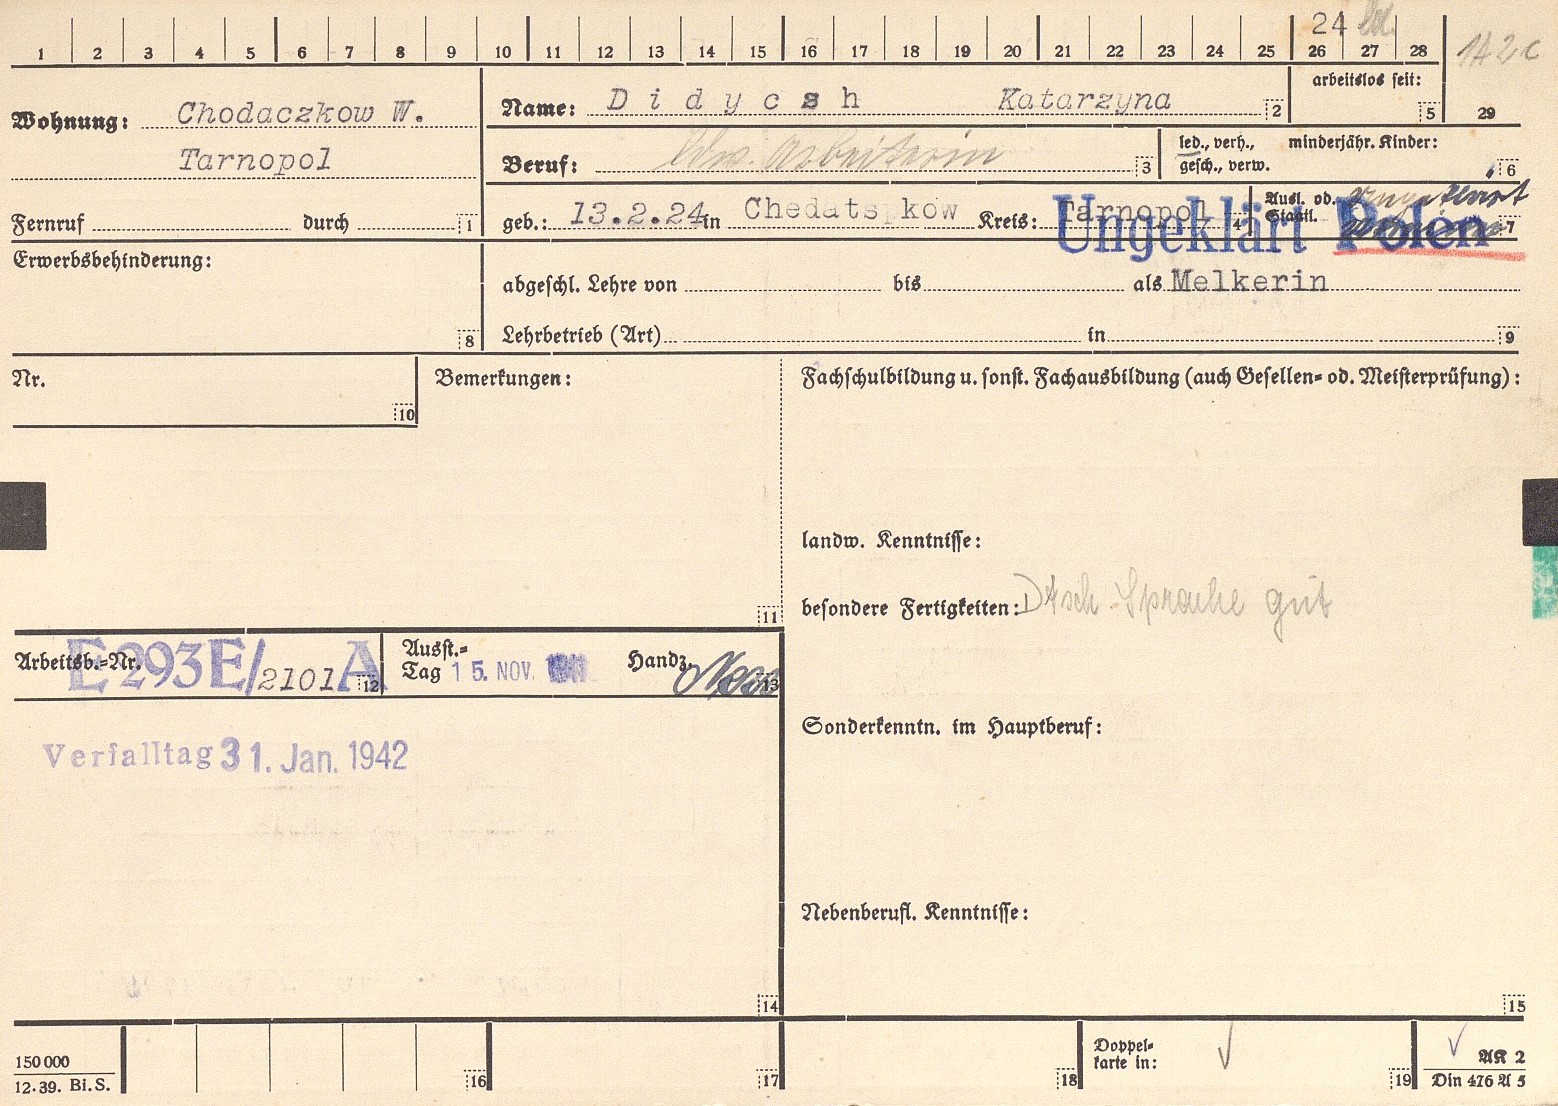 24
1 2 3 4 5 6 7 8 9 10 11 12 13 14 15 16 17 18 19 20 21 22 23 24 25 26 27 28
1A2c
29
Wohnung: Chodaczkow W.
Tarnopol
Fernruf durch 1
Name: Didycsh Katarzyna 2
arbeitslos seit: 5
Beruf: ldw. Arbeiterin 3
led., verh., minderjähr. Kinder:
gesch., verw. 6
geb.: 13.2.24 in Chedatskow Kreis: Tarnopol 4
Ausl. od.
Staatl. 7
Ungeklärt Polen
Erwerbsbehinderung:
8
abgeschl. Lehre von bis als Melkerin
Lehrbetrieb (Art) in 9
Nr.
10
Bemerkungen:
11
Fachschulbildung u. sonst. Fachausbildung (auch Gesellen- od. Meisterprüfung):
landw. Kenntnisse:
besondere Fertigkeiten: Dtsch. Sprache gut
Arbeitsb.-Nr. E 293E/2101A 12
Ausst.-
Tag 15. NOV. Handz. 13
Verfalltag 31. Jan. 1942
Sonderkenntn. im Hauptberuf:
Nebenberufl. Kenntnisse:
14
15
150 000
12. 39. Bi. S.
16
17
18
Doppel-
karte in:
19
AK 2
Din 476 A 5